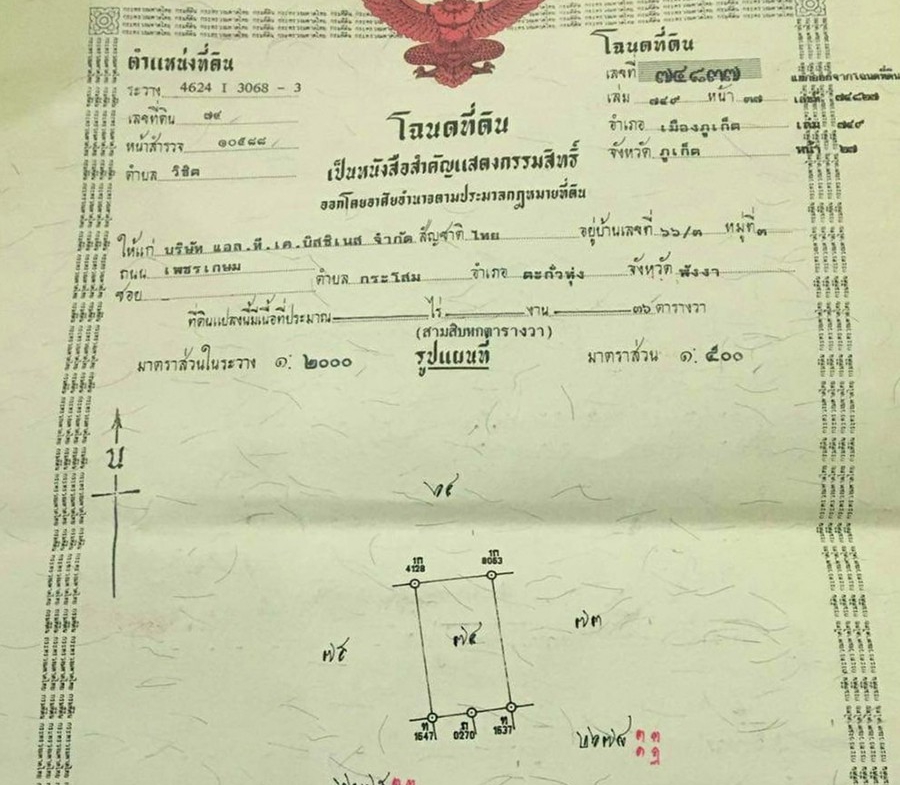 ตำแหน่งที่ดิน
ระวาง 4624 I 3068 - 3
เลขที่ดิน ๗๔
หน้าสำรวจ ๑๐๕๘๘
ตำบล วิชิต
โฉนดที่ดิน
เลขที่ ๗๔๘๓๗
เล่ม ๗๔๙ หน้า ๓๗
อำเภอ เมืองภูเก็ต
จังหวัด ภูเก็ต
แยกออกจากโฉนดที่ดิน
เลขที่ ๗๔๘๒๗
เล่ม ๗๔๙
หน้า ๒๗
โฉนดที่ดิน
เป็นหนังสือสำคัญแสดงกรรมสิทธิ์
ออกโดยอาศัยอำนาจตามประมวลกฎหมายที่ดิน
ให้แก่ บริษัท แอล.ที.เค.บิสซิเนส จำกัด สัญชาติ ไทย อยู่บ้านเลขที่ ๖๖/๓ หมู่ที่ ๓
ถนน เพชรเกษม ตำบล กระโสม อำเภอ ตะกั่วทุ่ง จังหวัด พังงา
ซอย
ที่ดินแปลงนี้มีเนื้อที่ประมาณ ไร่ งาน ๓๖ ตารางวา
(สามสิบหกตารางวา)
มาตราส่วนในระวาง ๑: ๒๐๐๐ รูปแผนที่ มาตราส่วน ๑: ๕๐๐
น
1ก 4128
1ก 8053
๗๕
๗๔
๗๓
ท 1547
ภ 0270
ท 1537